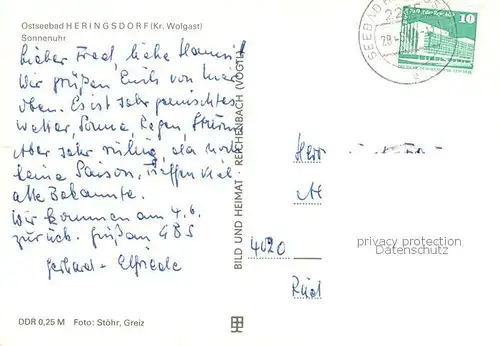 Ostseebad HERINGSDORF (Kr. Wolgast)
Sonnenuhr
Lieber Fred, liebe Hanni!
Wir grüßen Euch von hier
oben. Es ist sehr gemischtes
Wetter, Sonne, Regen, Sturm
Aber sehr ruhig, da noch
keine Saison. Treffen viel
alte Bekannte.
Wir kommen am 4.6.
zurück. Gruß an GBS
Gerhard - Elfriede
DDR 0,25 M Foto: Stöhr, Greiz
BILD UND HEIMAT REICHENBACH (VOGTL)
SEEBAD
10
Herr
4020
privacy protection
Datenschutz